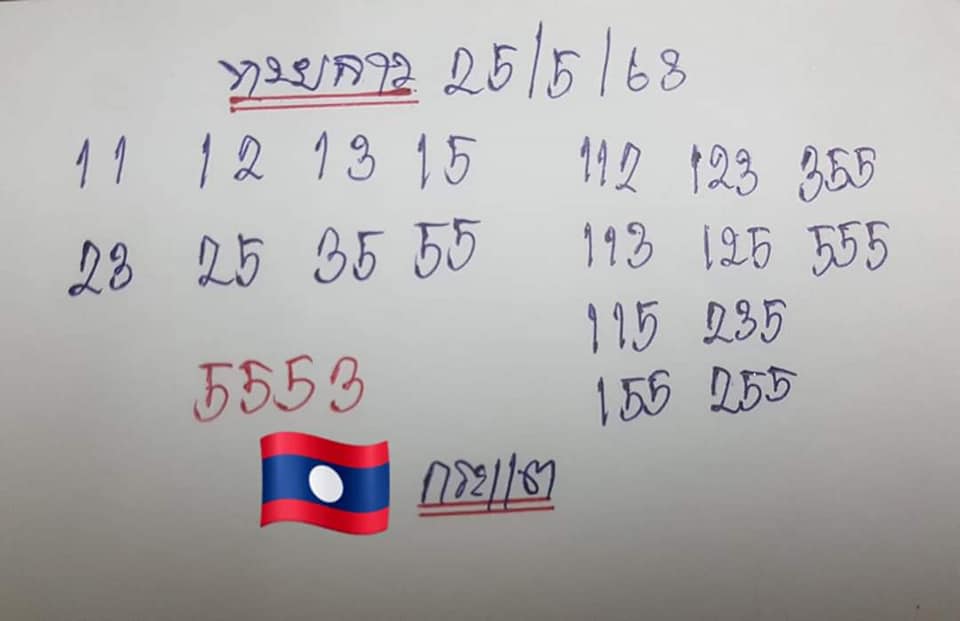 หวยลาว 25/5/68
11 12 13 15
23 25 35 55
112 123 355
113 125 555
115 235
155 255
5553
กระแต